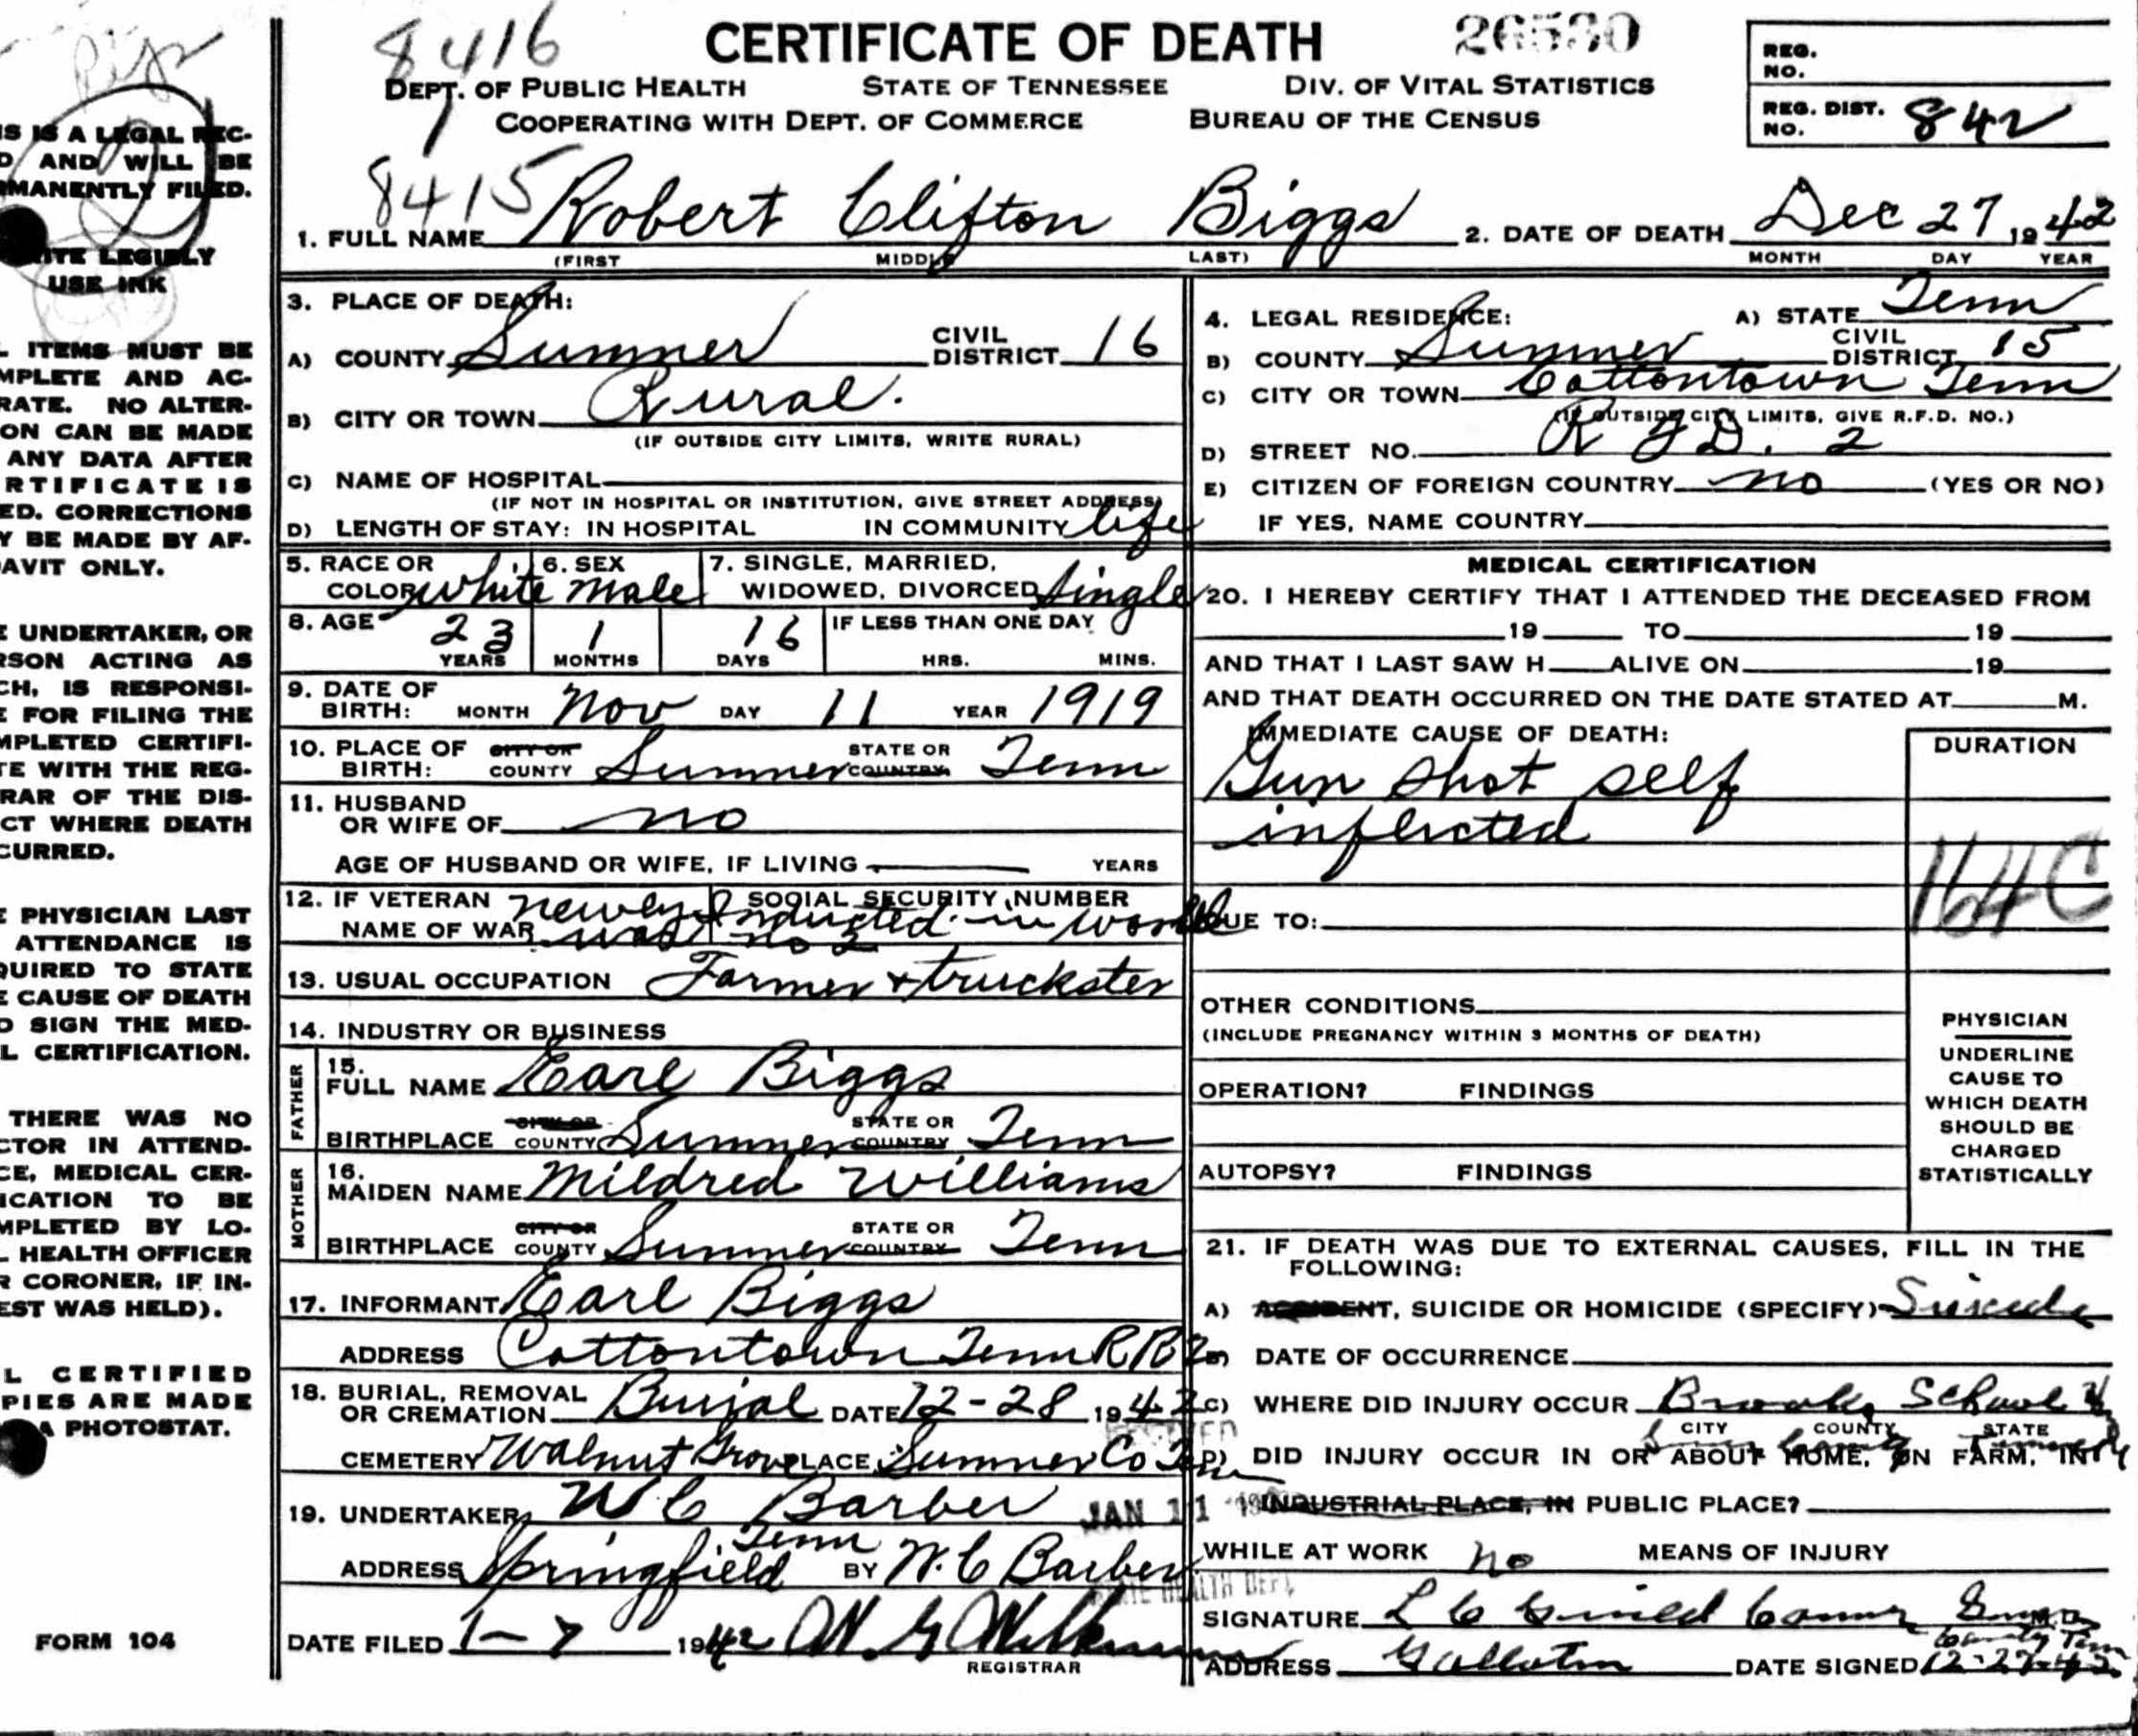 8416 CERTIFICATE OF DEATH 26530
DEPT. OF PUBLIC HEALTH STATE OF TENNESSEE DIV. OF VITAL STATISTICS
COOPERATING WITH DEPT. OF COMMERCE BUREAU OF THE CENSUS
REG. NO.
REG. DIST. NO. 842
8415
1. FULL NAME Robert Clifton Biggs 2. DATE OF DEATH Dec 27 1942
(FIRST MIDDLE LAST) MONTH DAY YEAR
3. PLACE OF DEATH:
A) COUNTY Sumner CIVIL DISTRICT 16
B) CITY OR TOWN Rural.
(IF OUTSIDE CITY LIMITS, WRITE RURAL)
C) NAME OF HOSPITAL
(IF NOT IN HOSPITAL OR INSTITUTION, GIVE STREET ADDRESS)
D) LENGTH OF STAY: IN HOSPITAL IN COMMUNITY life
4. LEGAL RESIDENCE: A) STATE Tenn
B) COUNTY Sumner CIVIL DISTRICT 15
C) CITY OR TOWN Cottontown Tenn
(IF OUTSIDE CITY LIMITS, GIVE R.F.D. NO.)
D) STREET NO. R F D. 2
E) CITIZEN OF FOREIGN COUNTRY no (YES OR NO)
IF YES, NAME COUNTRY
5. RACE OR COLOR white 6. SEX male 7. SINGLE, MARRIED, WIDOWED, DIVORCED single
8. AGE 23 1 16 IF LESS THAN ONE DAY
YEARS MONTHS DAYS HRS. MINS.
9. DATE OF BIRTH: MONTH Nov DAY 11 YEAR 1919
10. PLACE OF BIRTH: CITY OR COUNTY Sumner STATE OR COUNTRY Tenn
11. HUSBAND OR WIFE OF no
AGE OF HUSBAND OR WIFE, IF LIVING YEARS
12. IF VETERAN NAME OF WAR SOCIAL SECURITY NUMBER
newly inducted in world
war no 2
13. USUAL OCCUPATION Farmer + truckster
14. INDUSTRY OR BUSINESS
FATHER
15. FULL NAME Earl Biggs
BIRTHPLACE CITY OR COUNTY Sumner STATE OR COUNTRY Tenn
MOTHER
16. MAIDEN NAME Mildred Williams
BIRTHPLACE CITY OR COUNTY Sumner STATE OR COUNTRY Tenn
17. INFORMANT Earl Biggs
ADDRESS Cottontown Tenn R R 2
18. BURIAL, REMOVAL OR CREMATION Burial DATE 12-28 1942
CEMETERY Walnut Grove PLACE Sumner Co Tenn
19. UNDERTAKER W C Barber
ADDRESS Springfield Tenn BY W. C Barber
RECEIVED
JAN 11
STATE HEALTH DEPT.
DATE FILED 1-7 1942
REGISTRAR
MEDICAL CERTIFICATION
20. I HEREBY CERTIFY THAT I ATTENDED THE DECEASED FROM
19 TO 19
AND THAT I LAST SAW H ALIVE ON 19
AND THAT DEATH OCCURRED ON THE DATE STATED AT M.
IMMEDIATE CAUSE OF DEATH: DURATION
Gun shot self
inflicted
164C
DUE TO:
OTHER CONDITIONS
(INCLUDE PREGNANCY WITHIN 3 MONTHS OF DEATH)
OPERATION? FINDINGS
AUTOPSY? FINDINGS
PHYSICIAN
UNDERLINE
CAUSE TO
WHICH DEATH
SHOULD BE
CHARGED
STATISTICALLY
21. IF DEATH WAS DUE TO EXTERNAL CAUSES, FILL IN THE
FOLLOWING:
A) ACCIDENT, SUICIDE OR HOMICIDE (SPECIFY) Suicide
B) DATE OF OCCURRENCE
C) WHERE DID INJURY OCCUR School
CITY COUNTY STATE
D) DID INJURY OCCUR IN OR ABOUT HOME, ON FARM, IN
INDUSTRIAL PLACE, IN PUBLIC PLACE?
WHILE AT WORK no MEANS OF INJURY
SIGNATURE L C M.D.
ADDRESS Gallatin DATE SIGNED 12-27-42
IS IS A LEGAL REC-
D AND WILL BE
MANENTLY FILED.
ITE LEGIBLY
USE INK
L ITEMS MUST BE
MPLETE AND AC-
RATE. NO ALTER-
ON CAN BE MADE
ANY DATA AFTER
RTIFICATE IS
ED. CORRECTIONS
Y BE MADE BY AF-
AVIT ONLY.
E UNDERTAKER, OR
RSON ACTING AS
CH, IS RESPONSI-
E FOR FILING THE
MPLETED CERTIFI-
TE WITH THE REG-
RAR OF THE DIS-
CT WHERE DEATH
CURRED.
E PHYSICIAN LAST
ATTENDANCE IS
QUIRED TO STATE
E CAUSE OF DEATH
D SIGN THE MED-
L CERTIFICATION.
THERE WAS NO
CTOR IN ATTEND-
CE, MEDICAL CER-
ICATION TO BE
MPLETED BY LO-
L HEALTH OFFICER
R CORONER, IF IN-
EST WAS HELD).
L CERTIFIED
PIES ARE MADE
A PHOTOSTAT.
FORM 104